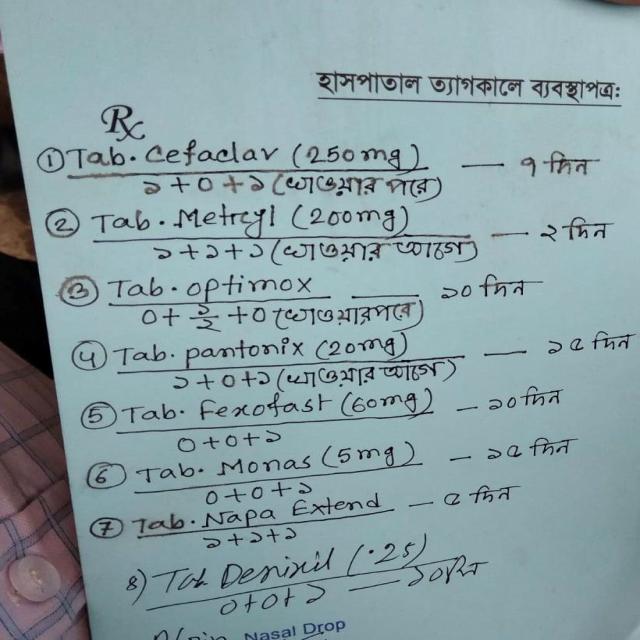 হাসপাতাল ত্যাগকালে ব্যবস্থাপত্র:
Rx
① Tab. Cefaclav (250mg) — ৭ দিন
১ + ০ + ১ (খাওয়ার পরে)
② Tab. Metryl (200mg) — ২ দিন
১ + ১ + ১ (খাওয়ার আগে)
③ Tab. optimox — ১০ দিন
০ + ১/২ + ০ (খাওয়ার পরে)
④ Tab. pantonix (20mg) — ১৫ দিন
১ + ০ + ১ (খাওয়ার আগে)
⑤ Tab. Fexofast (60mg) — ১০ দিন
০ + ০ + ১
⑥ Tab. Monas (5mg) — ১৫ দিন
০ + ০ + ১
⑦ Tab. Napa Extend — ৫ দিন
১ + ১ + ১
৪) Tab Denixil (.25) — ১০ দিন
০ + ০ + ১
Nasal Drop